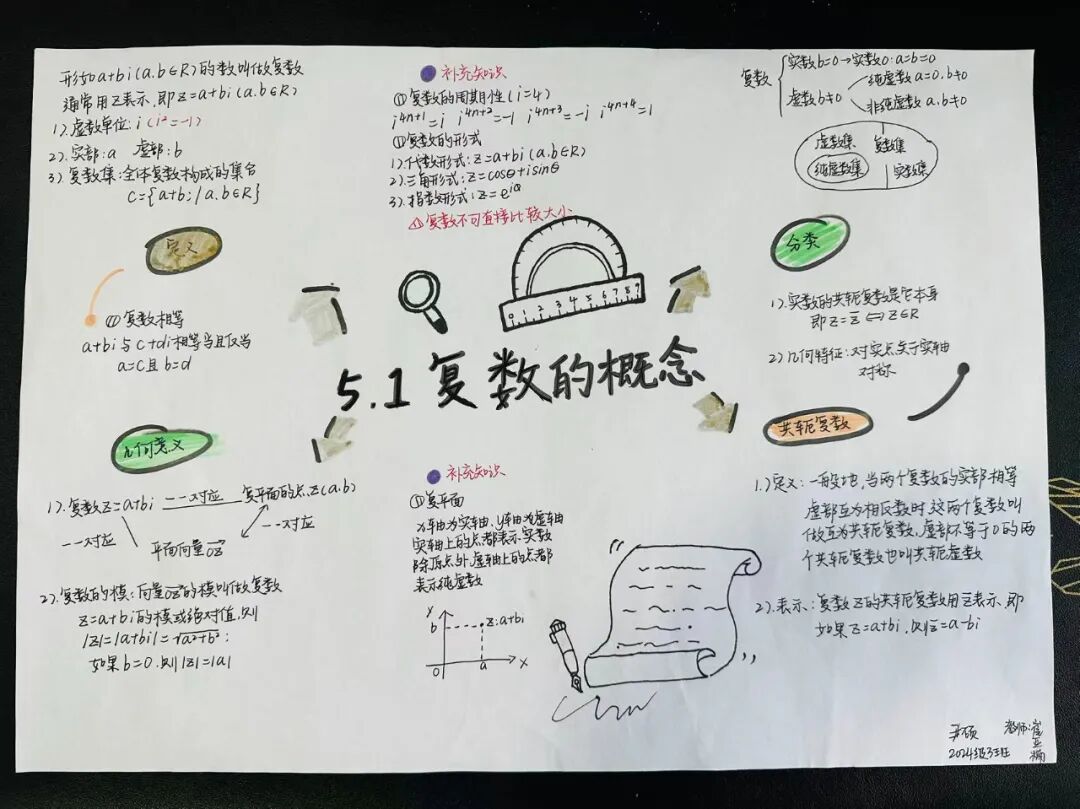 5.1复数的概念
形如a+bi(a.b∈R)的数叫做复数
通常用Z表示,即Z=a+bi(a.b∈R)
1).虚数单位:i(i²=-1)
2).实部:a 虚部:b
3).复数集:全体复数构成的集合
C={a+bi|a.b∈R}
定义
①复数相等
a+bi与c+di相等当且仅当
a=c且b=d
补充知识
①复数的周期性(i=4)
i⁴ⁿ⁺¹=i i⁴ⁿ⁺²=-1 i⁴ⁿ⁺³=-i i⁴ⁿ⁺⁴=1
①复数的形式
1).代数形式:Z=a+bi(a.b∈R)
2).三角形式:Z=cosθ+isinθ
3).指数形式:Z=e^iθ
⚠复数不可直接比较大小
0 1 2 3 4 5 6 7 8 9
复数
实数b=0→实数0:a=b=0
虚数b≠0
纯虚数a=0.b≠0
非纯虚数a.b≠0
虚数集 复数集
纯虚数集 实数集
分类
1).实数的共轭复数是它本身
即Z=z̄⇔Z∈R
2)几何特征:对实点关于实轴
对称
共轭复数
1.)定义:一般地,当两个复数的实部相等
虚部互为相反数时,这两个复数叫
做互为共轭复数,虚部不等于0的两
个共轭复数也叫共轭虚数
2).表示:复数Z的共轭复数用z̄表示,即
如果Z=a+bi.则z̄=a-bi
几何意义
1).复数Z=a+bi 一一对应 复平面的点Z(a.b)
一一对应 一一对应
平面向量OZ
2).复数的模:向量OZ的模叫做复数
Z=a+bi的模或绝对值,则
|Z|=|a+bi|=√a²+b²;
如果b=0.则|Z|=|a|
补充知识
①复平面
x轴为实轴,y轴为虚轴
实轴上的点都表示实数
除原点外,虚轴上的点都
表示纯虚数
y
b
z:a+bi
0 a x
2024级3班
教师:崔亚楠